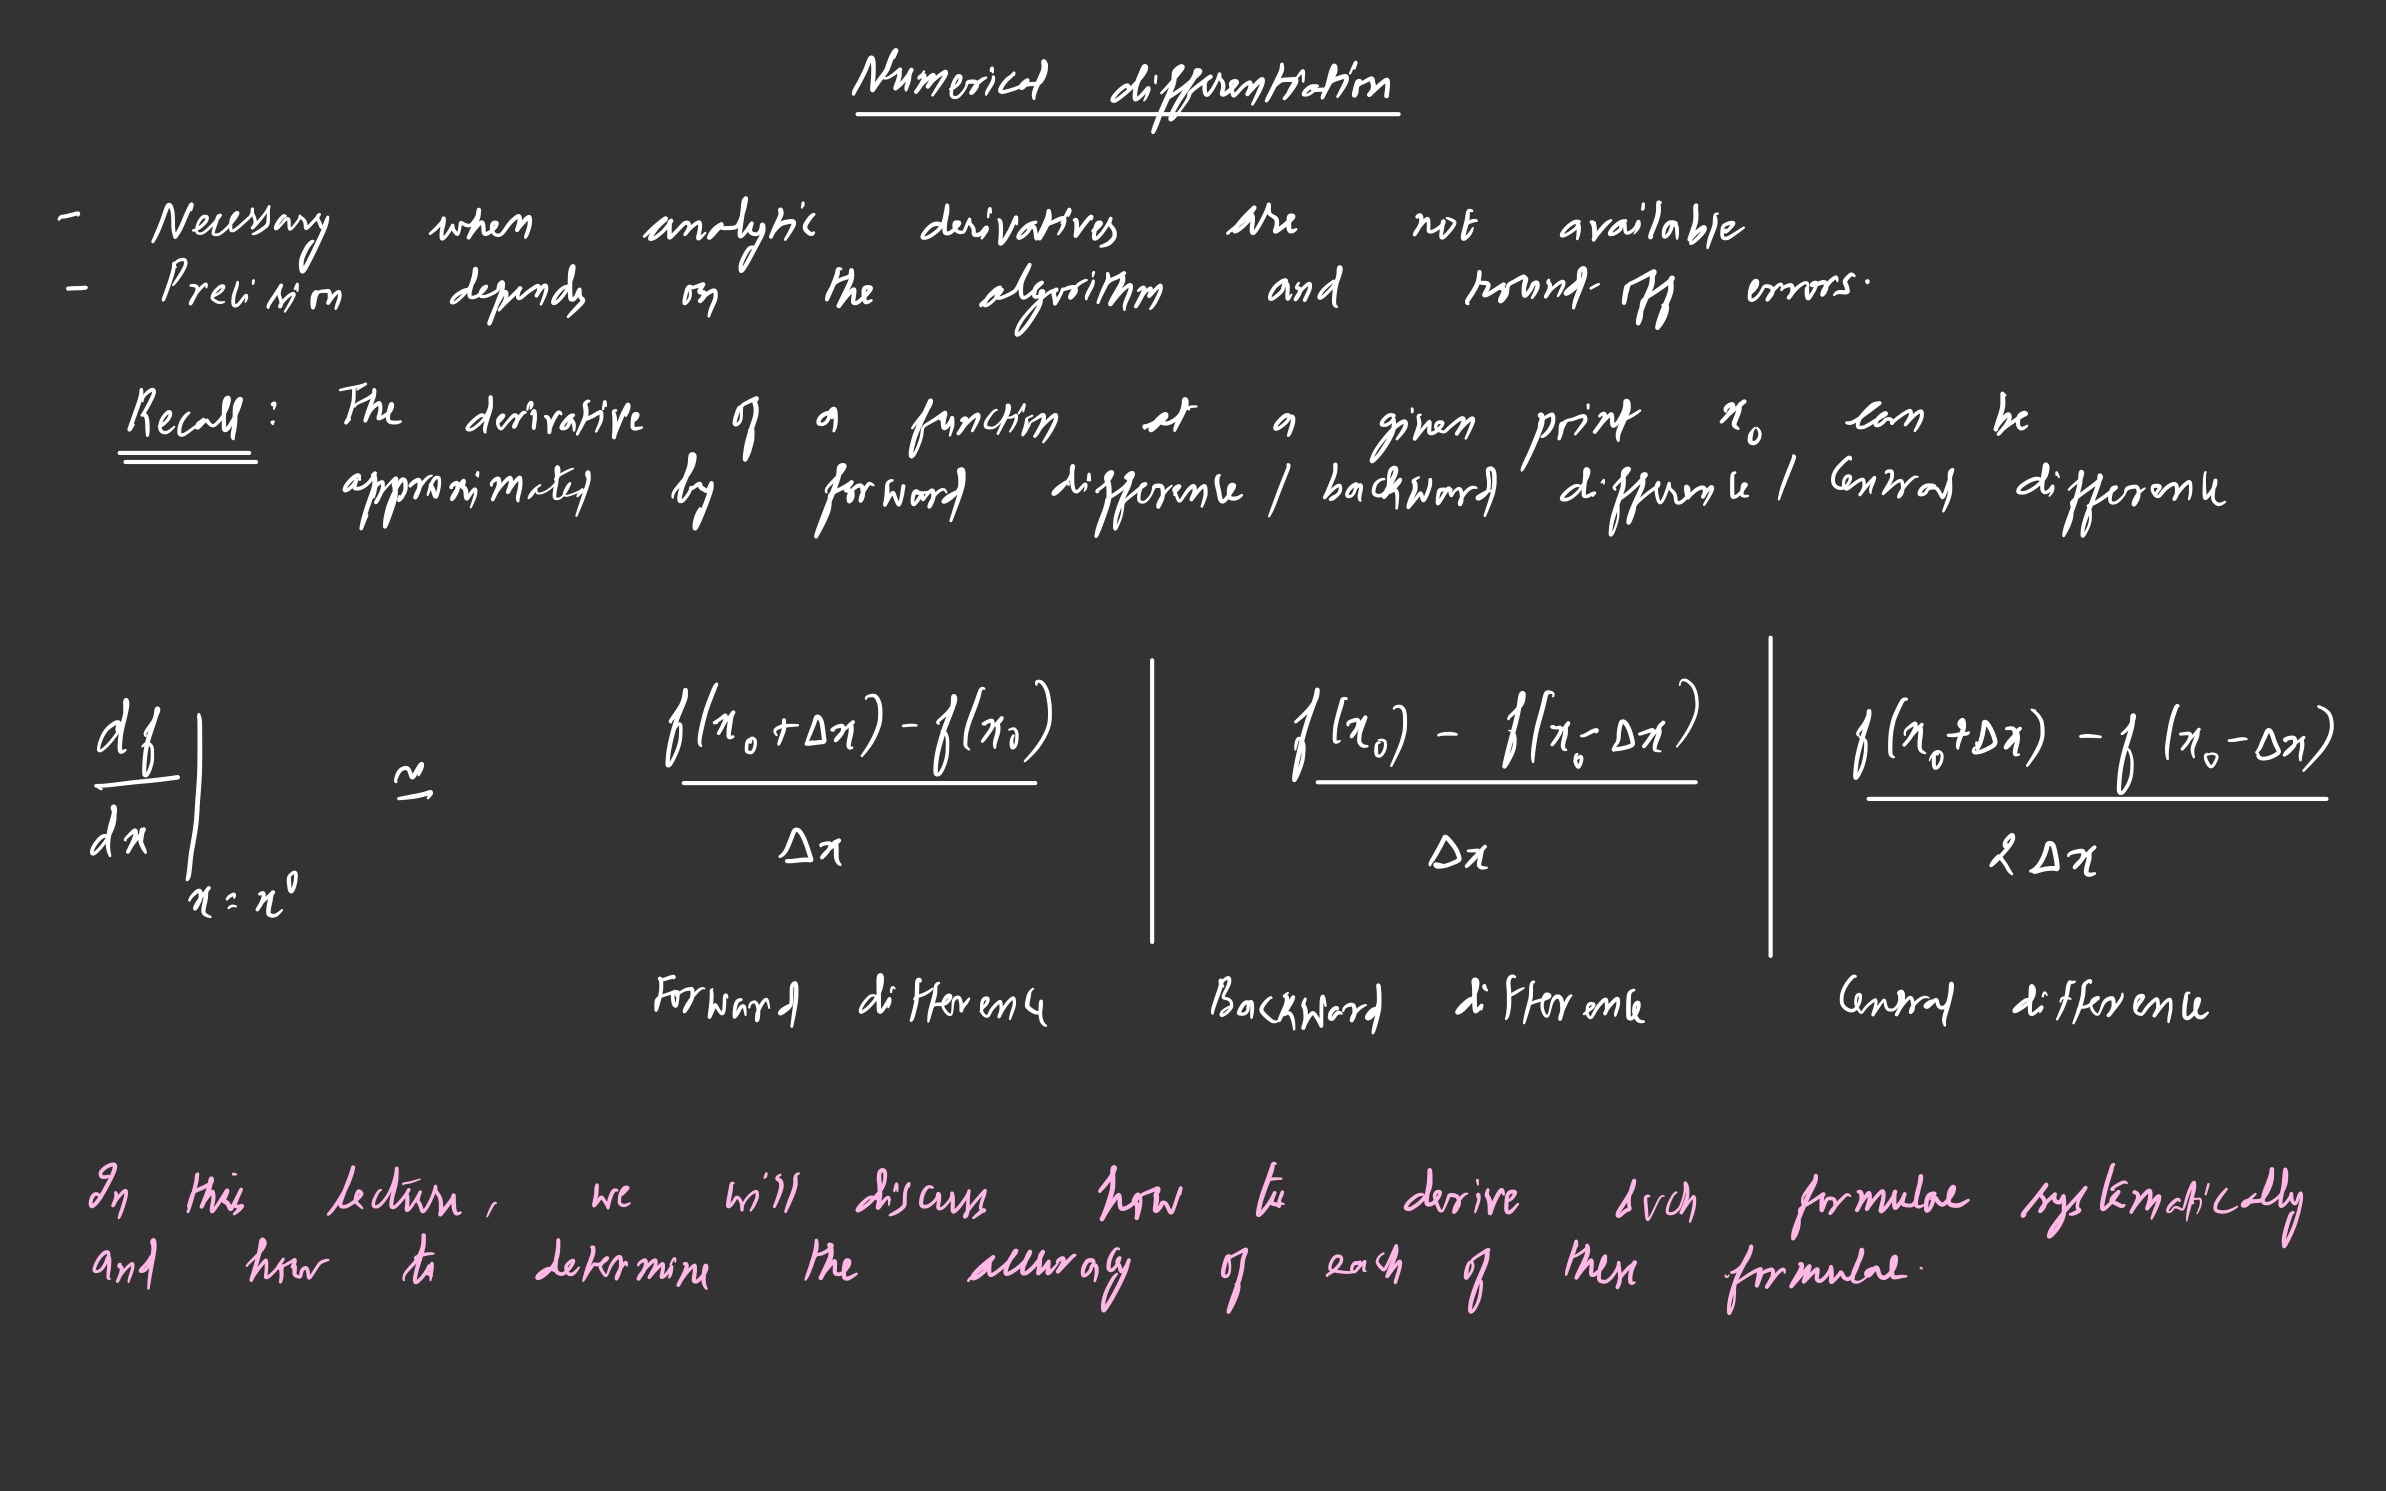 Numerical differentiation
- Necessary when analytic derivatives are not available
- Precision depends on the algorithm and round-off errors.
Recall: The derivative of a function at a given point x₀ can be
approximated by forward difference / backward difference / Central difference
df/dx |_{x=x⁰} ≃ (f(x₀+Δx) - f(x₀))/Δx | (f(x₀) - f(x₀-Δx))/Δx | (f(x₀+Δx) - f(x₀-Δx))/2Δx
Forward difference Backward difference Central difference
In this lecture, we will discuss how to derive such formulae systematically
and how to determine the accuracy of each of these formulae.